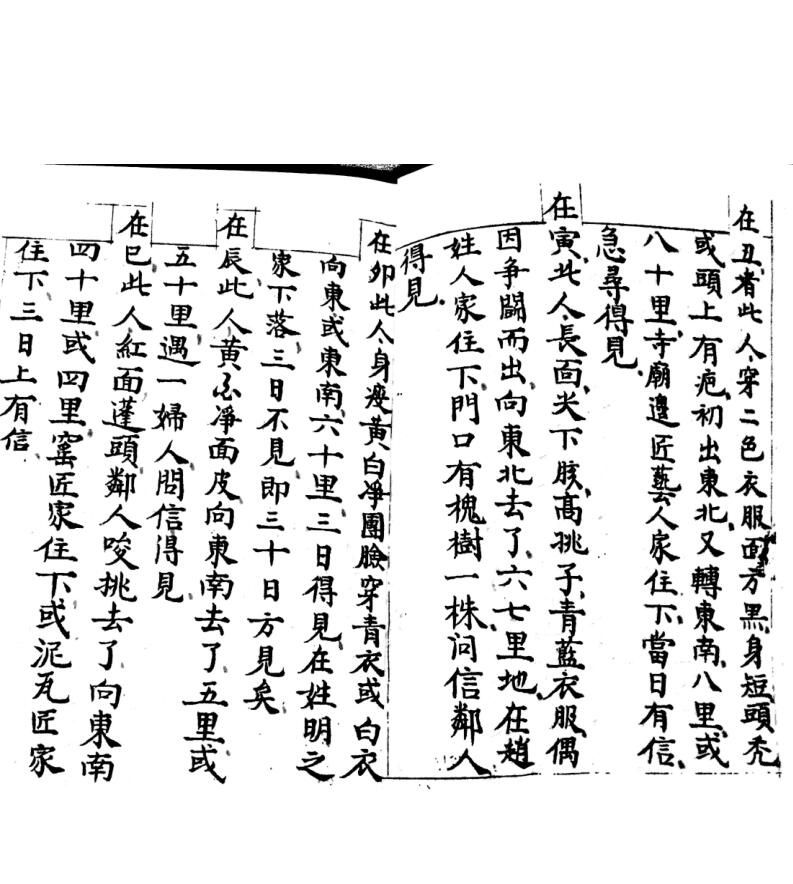 在丑者此人穿二色衣服面方黑身短頭禿
或頭上有疤初出東北又轉東南八里或
八十里寺廟邊匠藝人家住下當日有信
急尋得見
在寅此人長面尖下胲高挑子青藍衣服偶
因爭鬪而出向東北去了六七里地在趙
姓人家住下門口有槐樹一株问信鄰人
得見
在卯此人身瘦黃白净團臉穿青衣或白衣
向東或東南六十里三日得見在姓明之
家下落三日不見即三十日方見矣
在辰此人黃不凈面皮向東南去了五里或
五十里遇一婦人問信得見
在巳此人紅面蓬頭鄰人咬挑去了向東南
四十里或四里窰匠家住下或泥瓦匠家
住下三日上有信